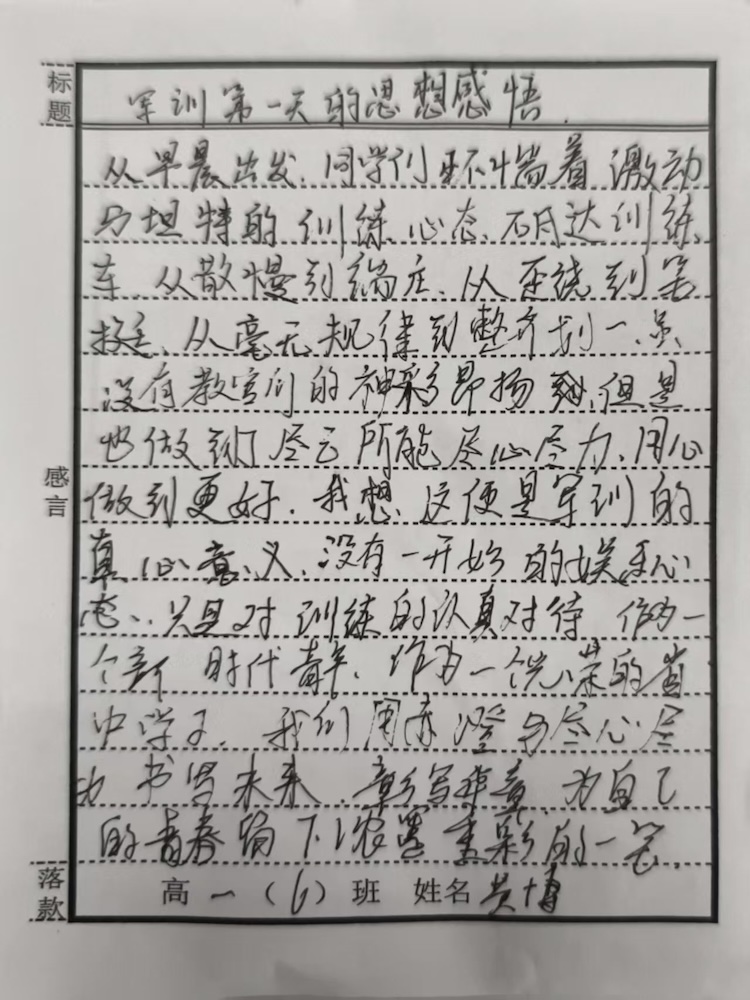 标题
军训第一天的思想感悟.
从早晨出发、同学们怀惴着激动
与坦特的训练心态、抵达训练
车、从散慢到端庄、从歪绕到笔
挺、从毫无规律到整齐划一、虽
没有教官们的神彩昂扬、但是
也做到了尽己所能尽心尽力、用心
做到更好. 我想、这便是军训的
真心意义、没有一开始的娱乐心
态、只是对训练的认真对待 作为一
个新时代青年、作为一个光荣的省
中学子、我们用 与尽心尽
力 书写未来、 为自己
的青春留下浓墨重彩的一笔.
感言
落款
高一(6)班 姓名 博